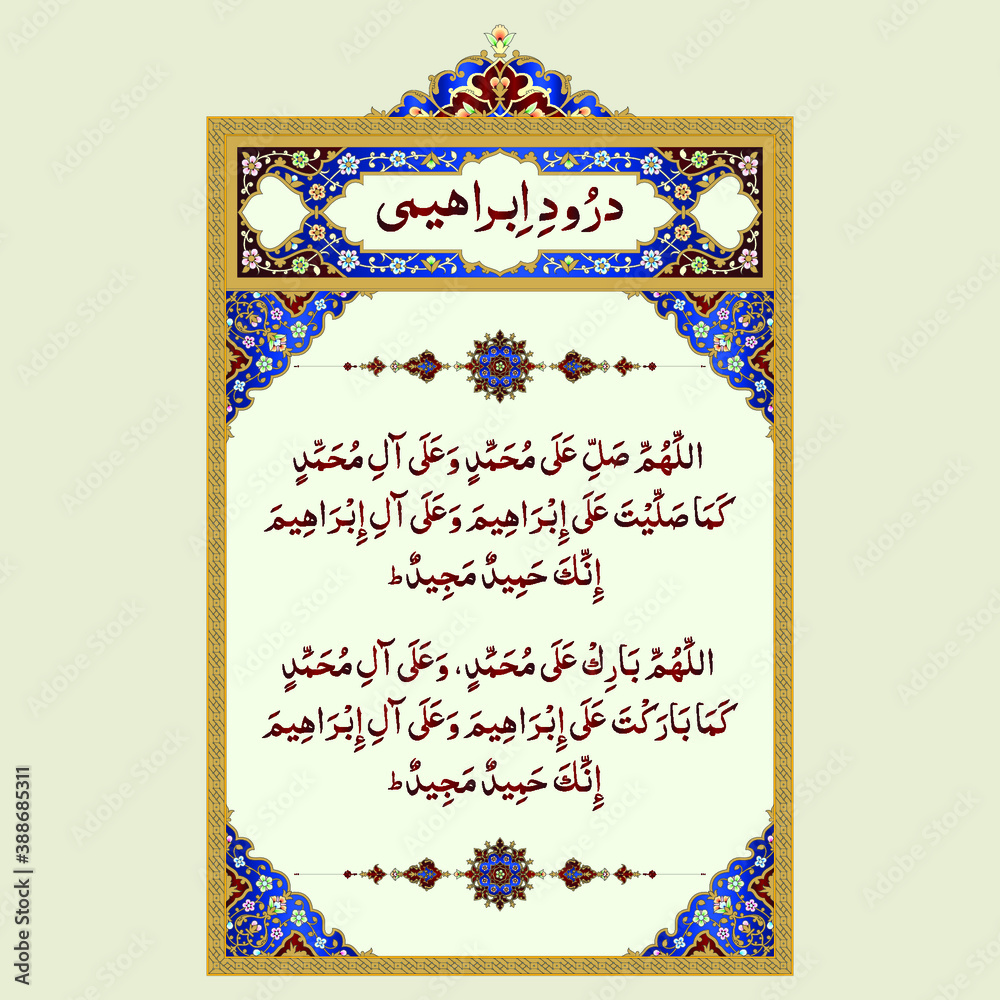 درُودِ اِبراهیمی
اللّٰهُمَّ صَلِّ عَلَى مُحَمَّدٍ وَعَلَى آلِ مُحَمَّدٍ
كَمَا صَلَّيْتَ عَلَى إِبْرَاهِيمَ وَعَلَى آلِ إِبْرَاهِيمَ
إِنَّكَ حَمِيدٌ مَجِيدٌ ط
اللّٰهُمَّ بَارِكْ عَلَى مُحَمَّدٍ، وَعَلَى آلِ مُحَمَّدٍ
كَمَا بَارَكْتَ عَلَى إِبْرَاهِيمَ وَعَلَى آلِ إِبْرَاهِيمَ
إِنَّكَ حَمِيدٌ مَجِيدٌ ط
Adobe Stock | #388685311